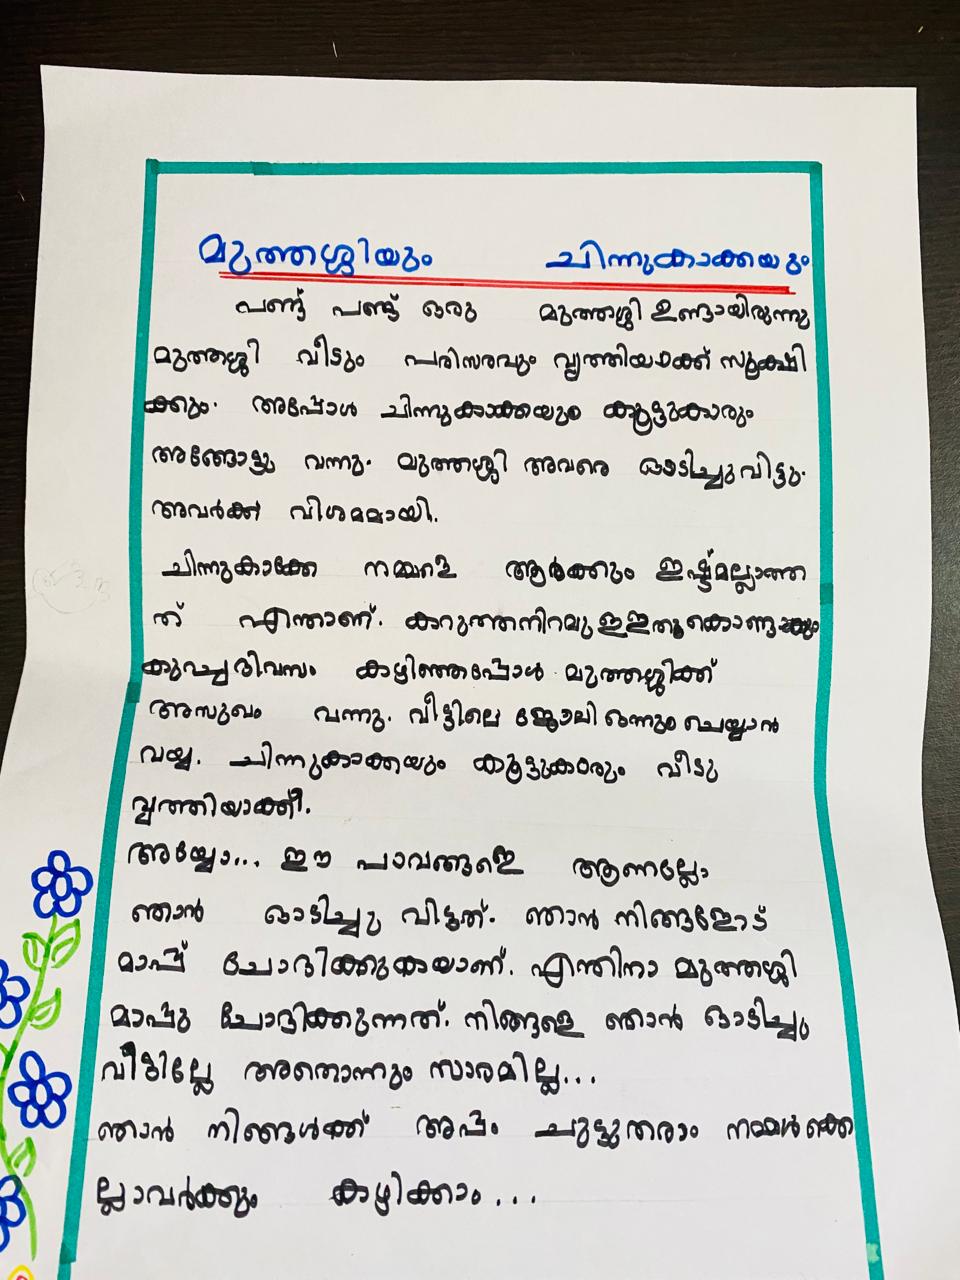 മുത്തശ്ശിയും ചിന്നുകാക്കയും
പണ്ട് പണ്ട് ഒരു മുത്തശ്ശി ഉണ്ടായിരുന്നു
മുത്തശ്ശി വീടും പരിസരവും വൃത്തിയാക്ക് സൂക്ഷി
ക്കും. അപ്പോൾ ചിന്നുകാക്കയും കൂട്ടുകാരും
അങ്ങോട്ടു വന്നു. മുത്തശ്ശി അവരെ ഓടിച്ചുവിട്ടു.
അവർക്ക് വിശമമായി.
ചിന്നുകാക്കേ നമ്മളെ ആർക്കും ഇഷ്ട്ടമല്ലാത്ത
ത് എന്താണ്. കറുത്തനിറമു ഇഇതുകൊണ്ടാകും
കുറച്ചുദിവസം കഴിഞ്ഞപ്പോൾ മുത്തശ്ശിക്ക്
അസുഖം വന്നു. വീട്ടിലെ ജോലി ഒന്നും ചെയ്യാൻ
വയ്യ. ചിന്നുകാക്കയും കൂട്ടുകാരും വീടു
വൃത്തിയാക്കീ.
അയ്യോ... ഈ പാവങ്ങളെ ആണല്ലോ
ഞാൻ ഓടിച്ചു വിട്ടത്. ഞാൻ നിങ്ങളോട്
മാപ്പ് ചോദിക്കുകയാണ്. എന്തിനാ മുത്തശ്ശി
മാപ്പു ചോദിക്കുന്നത്. നിങ്ങളെ ഞാൻ ഓടിച്ചു
വിട്ടില്ലേ അതൊന്നും സാരമില്ല...
ഞാൻ നിങ്ങൾക്ക് അപ്പം ചുട്ടുതരാം നമ്മൾക്കെ
ല്ലാവർക്കും കഴിക്കാം...